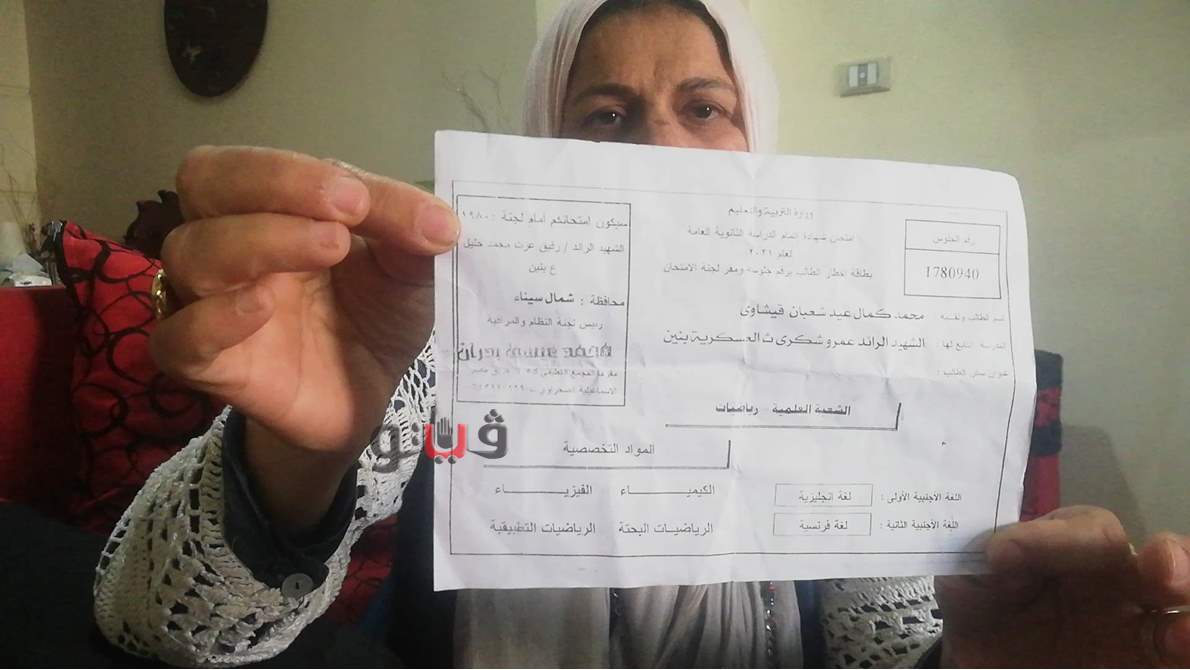 وزارة التربية والتعليم
امتحن شهادة اتمام الدراسة الثانوية العامة
لعام ٢٠٢١
بطاقة اخطار الطالب برقم جلوسه ومقر لجنة الامتحان
رقم الجلوس
1780940
اسم الطالب ولقبه : محمد كمال عيد شعبان قيشاوى
المدرسة التابع لها : الشهيد الرائد عمرو شكرى ث العسكرية بنين
عنوان سكن الطالب :
سيكون امتحانكم أمام لجنة : ١٩٨٠
الشهيد الرائد / رفيق عزت محمد خليل
ع بنين
محافظة : شمال سيناء
رئيس لجنة النظام والمراقبة
الشعبة العلمية - رياضيات
المواد التخصصية
الكيميـــاء الفيزيـــاء
الرياضيات البحتة الرياضيات التطبيقية
اللغة الأجنبية الأولى : لغة انجليزية
اللغة الأجنبية الثانية : لغة فرنسية
ڤيتو